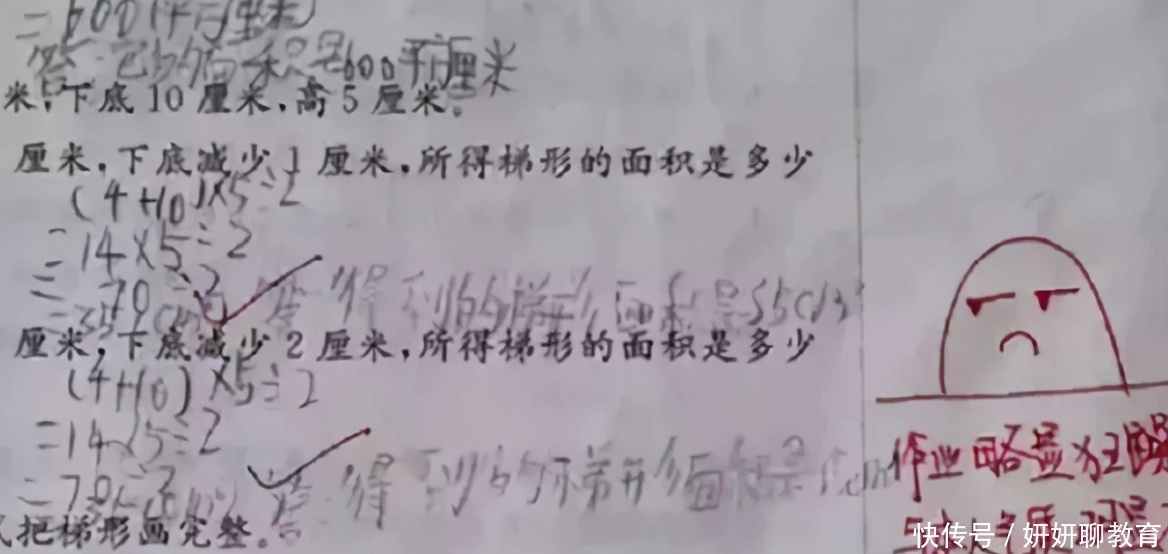 =600(平方厘米)
答:它的面积是600平方厘米
米,下底10厘米,高5厘米。
厘米,下底减少1厘米,所得梯形的面积是多少
(4+10)×5÷2
=14×5÷2
=70÷2
答:得到的梯形面积是35cm²
厘米,下底减少2厘米,所得梯形的面积是多少
(4+10)×5÷2
=14×5÷2
=70÷2
答:得到的梯形面积是
把梯形画完整。
作业略显
快传号/妍妍聊教育